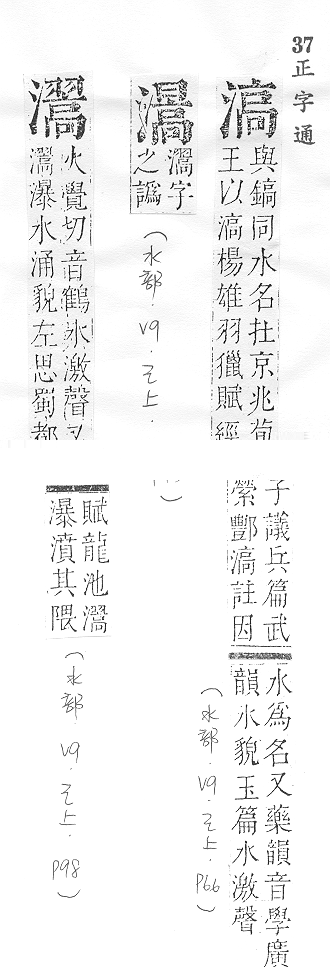 37 正字通
滈
與鎬同水名在京兆荀
王以滈楊雄羽獵賦經
子議兵篇武
縈酆滈註因
水爲名又藥韻音學廣
韻水貌玉篇水激聲
(水部.V9.巳上.P66)
㶅字
之譌
(水部.V9.巳上.
)
㶅
火覺切音鶴水激聲又
㶅瀑水涌貌左思蜀都
賦龍池㶅
瀑濆其隈
(水部.V9.巳上.P98)